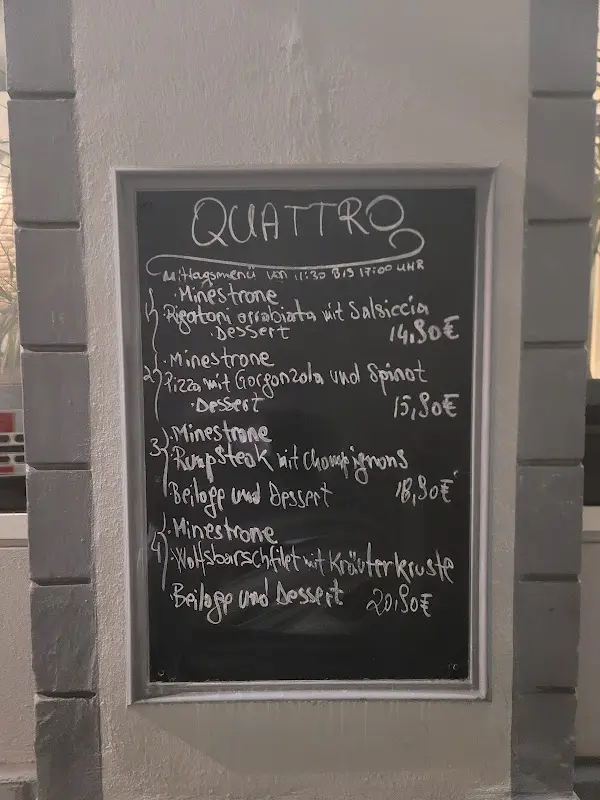 QUATTRO
Mittagsmenü von 11:30 BIS 17:00 UHR
1) · Minestrone
· Rigatoni arrabiata mit Salsiccia
· Dessert 14,90€
2) · Minestrone
· Pizza mit Gorgonzola und Spinat
· Dessert 15,90€
3) · Minestrone
· Rumpsteak mit Champignons
Beilage und Dessert 18,90€
4) · Minestrone
· Wolfsbarschfilet mit Kräuterkruste
Beilage und Dessert 20,90€